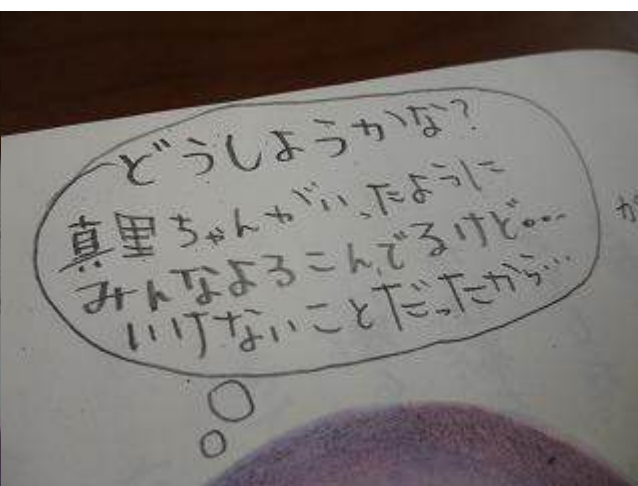 どうしようかな?
真里ちゃんがいったように
みんなよろこんでるけど…
いけないことだったから…
が